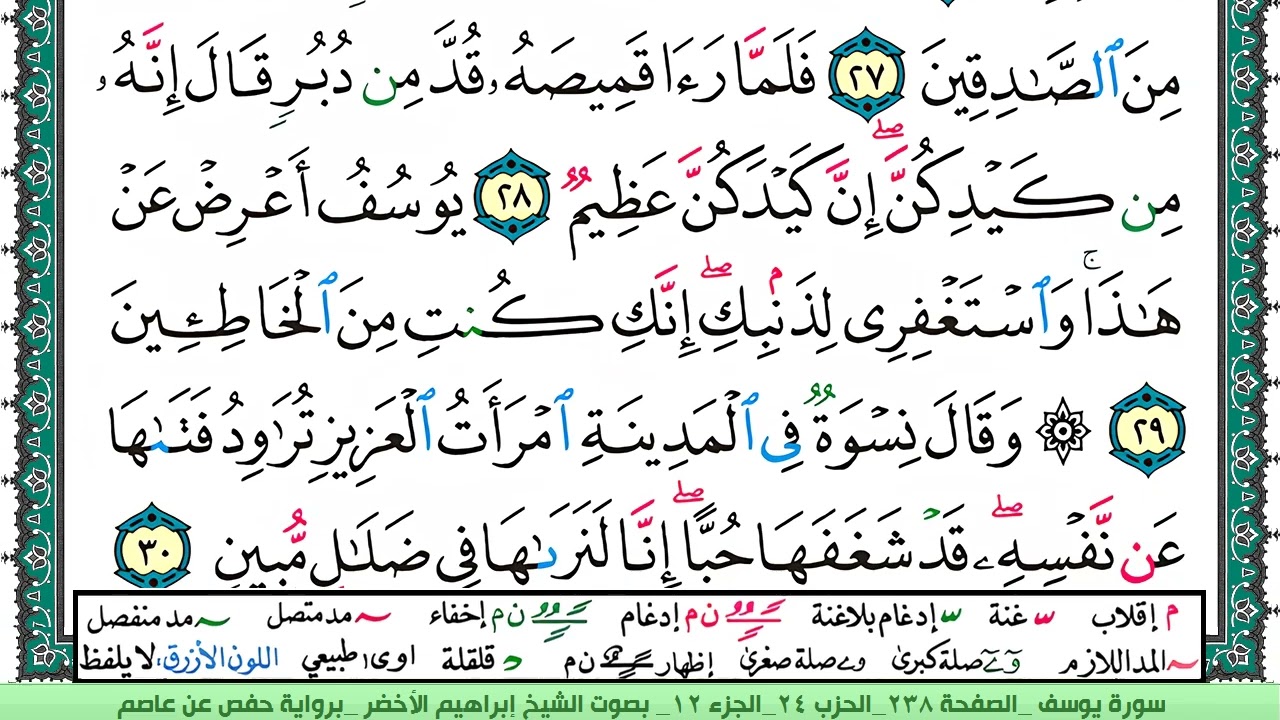 مِنَ ٱلصَّـٰدِقِينَ ٢٧ فَلَمَّا رَءَا قَمِيصَهُۥ قُدَّ مِن دُبُرٍ قَالَ إِنَّهُۥ
مِن كَيْدِكُنَّ ۖ إِنَّ كَيْدَكُنَّ عَظِيمٌ ٢٨ يُوسُفُ أَعْرِضْ عَنْ
هَـٰذَا ۚ وَٱسْتَغْفِرِى لِذَنۢبِكِ ۖ إِنَّكِ كُنتِ مِنَ ٱلْخَاطِـِٔينَ
٢٩ ۞ وَقَالَ نِسْوَةٌ فِى ٱلْمَدِينَةِ ٱمْرَأَتُ ٱلْعَزِيزِ تُرَٰوِدُ فَتَىٰهَا
عَن نَّفْسِهِۦ ۖ قَدْ شَغَفَهَا حُبًّا ۖ إِنَّا لَنَرَىٰهَا فِى ضَلَـٰلٍ مُّبِينٍ ٣٠
م إقلاب ـّ غنة ـّ إدغام بلاغنة ـًـٌـٍ ن م إدغام ـًـٌـٍ ن م إخفاء ~ مد متصل ~ مد منفصل
~ المد اللازم وۤ ےۤ صلة كبرى و ے صلة صغرى إظهار ـًـٌـٍ ن م د قلقلة اوى طبيعي اللون الأزرق: لا يلفظ
سورة يوسف _الصفحة ٢٣٨_الحزب ٢٤_الجزء ١٢_ بصوت الشيخ إبراهيم الأخضر _برواية حفص عن عاصم